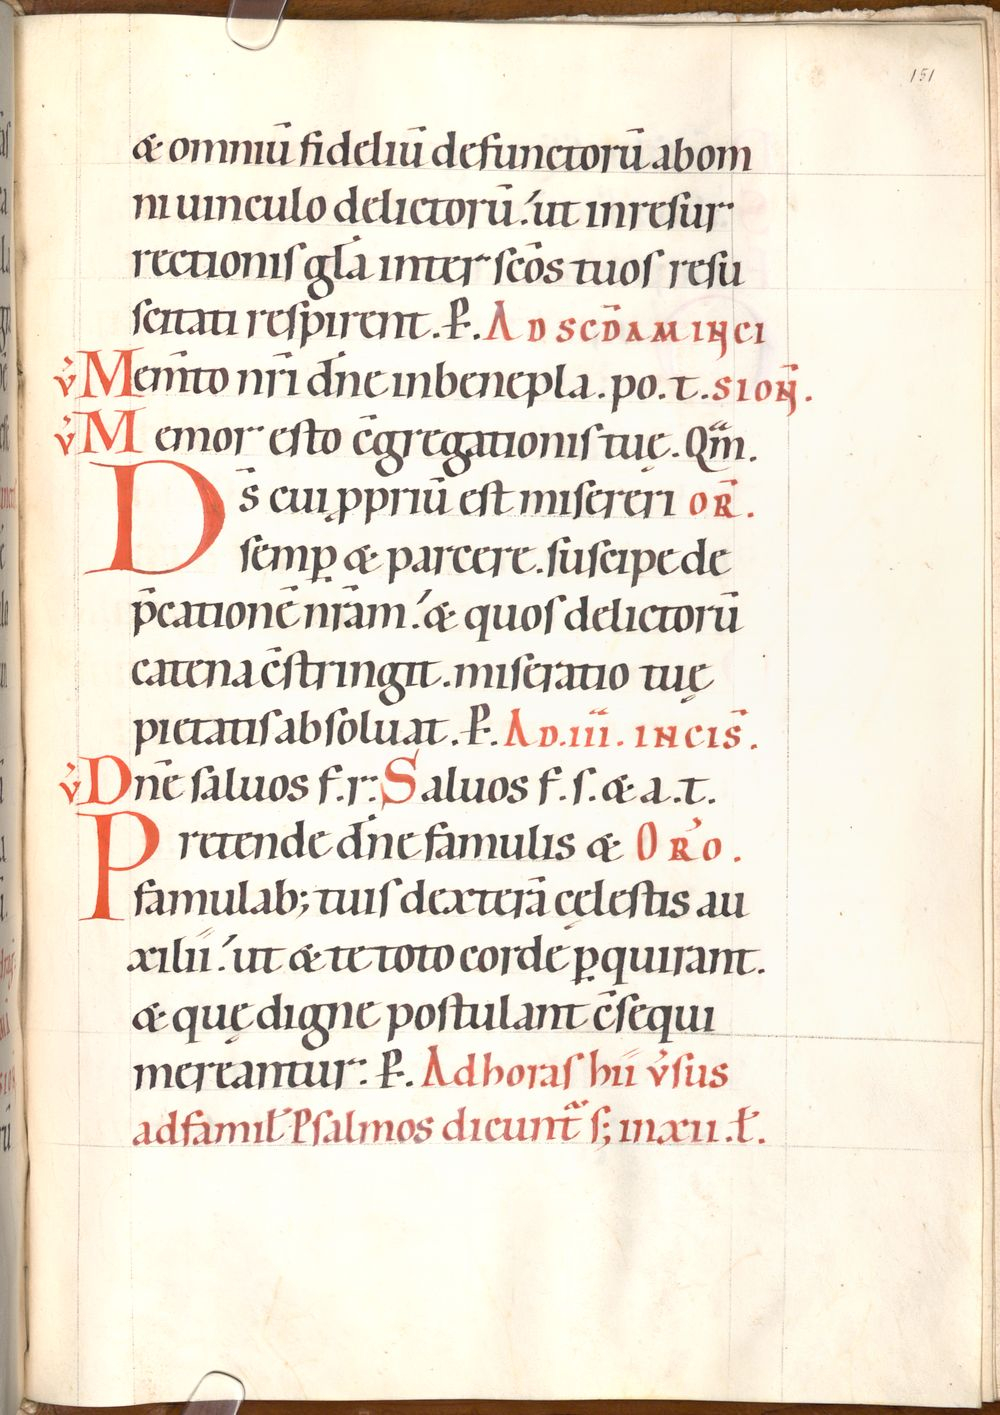 151
& omniū fideliū defunctorū ab om
ni uinculo delictorū. ut in resur
rectionis gl̄a inter sc̄os tuos resu
scitati respirent. P. AD SCD̄AM INCI
v̓ Mem̄to nr̄i dn̄e in benepla. po. t. SION̄.
v̓ Memor esto c̄gregationis tuę. Qm̄.
Ds̄ cui ꝓpriū est misereri OR̄.
semꝑ & parcere. suscipe de
p̄cationē nr̄am. & quos delictorū
catena c̄stringit. miseratio tuę
pietatis absoluat. P. AD. III. INCIS̄.
v̓ Dn̄e saluos f. r. Saluos f. s. & a. t.
Pretende dn̄e famulis & ORO.
famulab; tuis dexterā cęlestis au
xilii. ut & te toto corde ꝑquirant.
& quę digne postulant c̄sequi
mereantur. P. Ad horas hii v̓sus
ad famił Psalmos dicunt̄ s; in xii .ł.